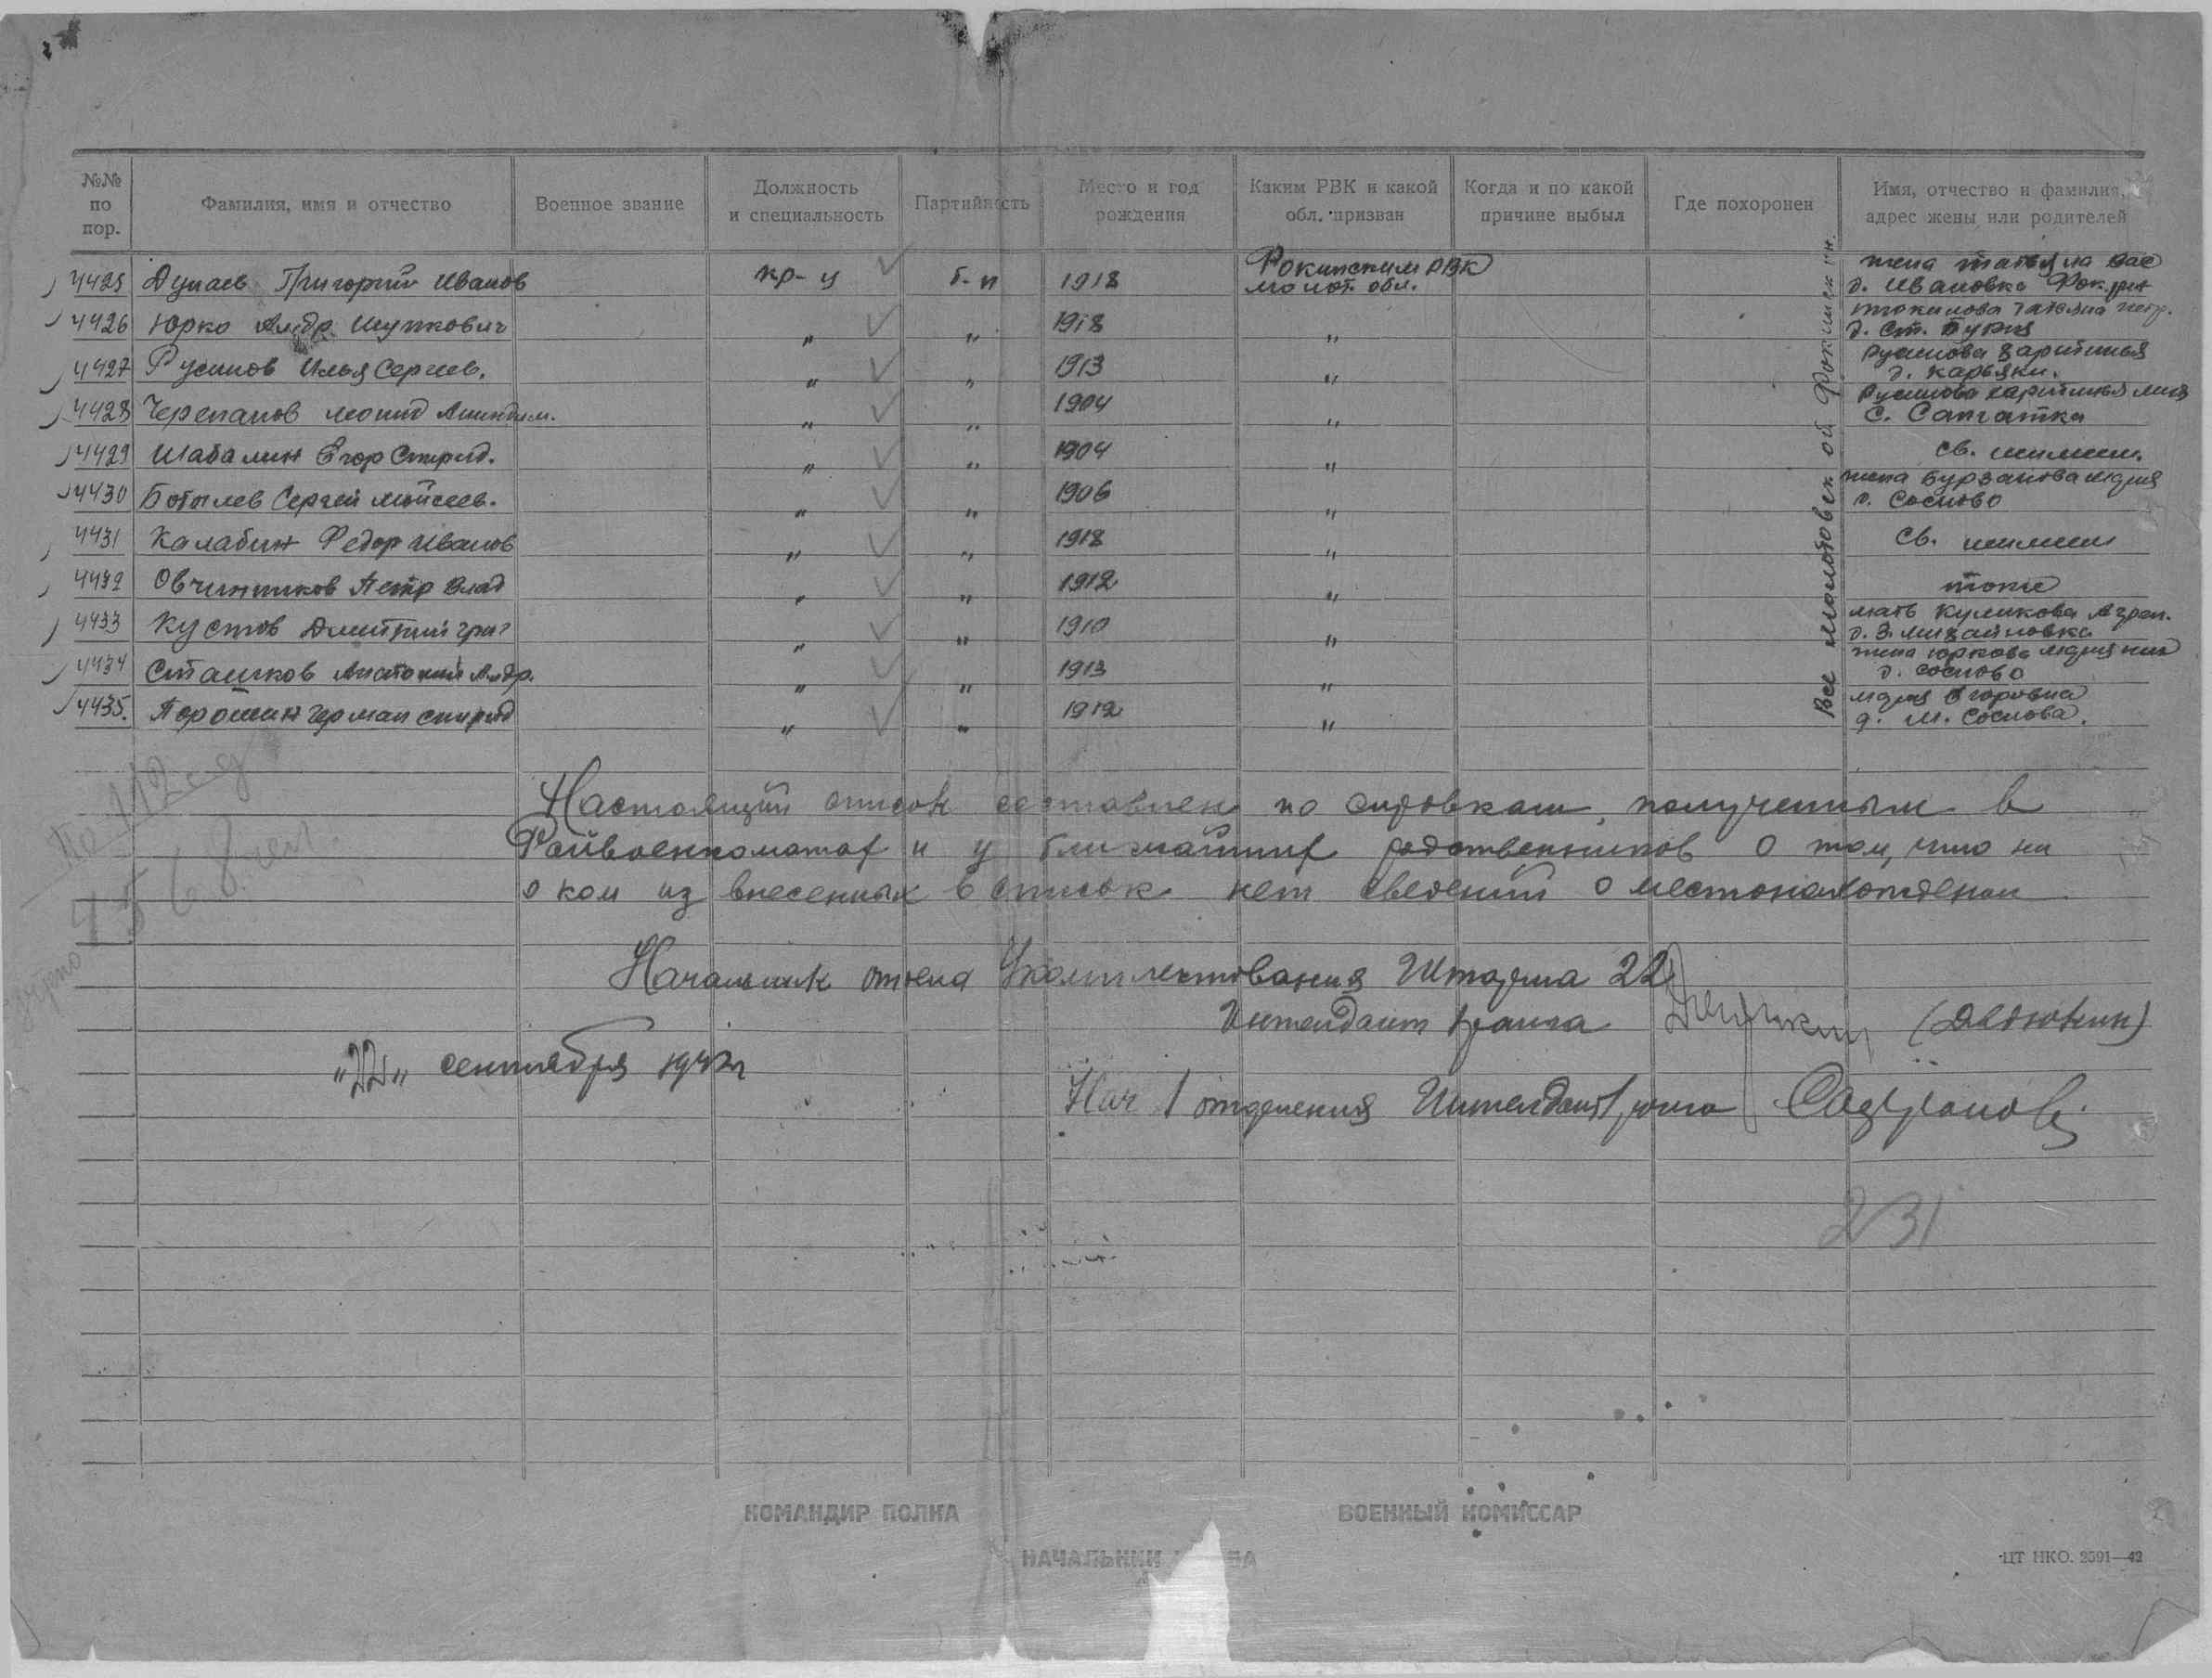 №№ по пор. Фамилия, имя и отчество Военное звание Должность и специальность Партийность Место и год рождения Каким РВК и какой обл. призван Когда и по какой причине выбыл Где похоронен Имя, отчество и фамилия, адрес жены или родителей
4425 Дунаев Григорий Иванов кр-ц б-п 1918 Фокинским РВК Молот. обл. жена Татьяна Вас д. Ивановка Фок. рн
4426 Юрко Алдр. " " 1918 " Татьяна петр. д. Ст.
4427 Русинов Илья Сергеев. " " 1913 " Русинова Харитинья д.
4428 Черепанов Леонид " " 1904 " Русинова Харитинья с. Сайгатка
4429 Шабалин Егор Спирид. " " 1904 " св. не имеет.
4430 Бобылев Сергей Моисеев. " " 1906 " жена д. Сосново
4431 Калабин Федор Иванов " " 1918 " св. не имеет
4432 Овчинников Петр Влад " " 1912 " тоже
4433 Кустов Дмитрий Григ " " 1910 " мать Куликова Агреп. д. З. Михайловка
4434 Сташков Анатолий Алдр. " " 1913 " жена Юркова Лидия д. Сосново
4435. Порошин Герман Спирид " " 1912 " Егоровна д. М. Соснова.
Все Молотовск. об Фокинск рн.
По 112 сд
4568 чел.
Настоящий список составлен по справкам, полученным в
Райвоенкоматах и у ближайших родственников о том, что ни
о ком из внесенных в список нет сведений о местонахождении
Начальник отдела Укомплектования Штарма 22
Интендант 1 ранга (Дедюкин)
"22" сентября 1942 г
Нач 1 отделения Интендант ранга
231
КОМАНДИР ПОЛКА ВОЕННЫЙ КОМИССАР
НАЧАЛЬНИК
ЦТ НКО. 2591—42